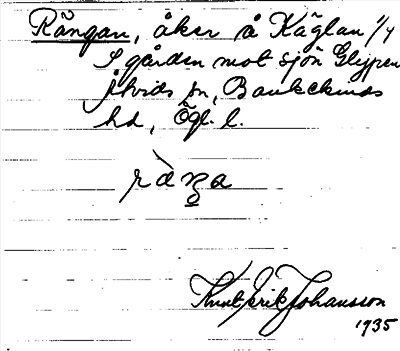 Rängan, åker å Käglan 1/4
S gården mot sjön Glypen
Åtvids sn, Bankekinds
hd, Ögl. l.
Knut Erik Johansson
1935